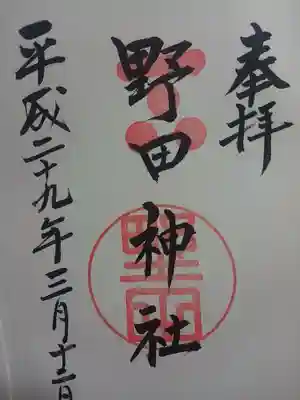 奉拝
野田神社
平成二十九年三月十二日